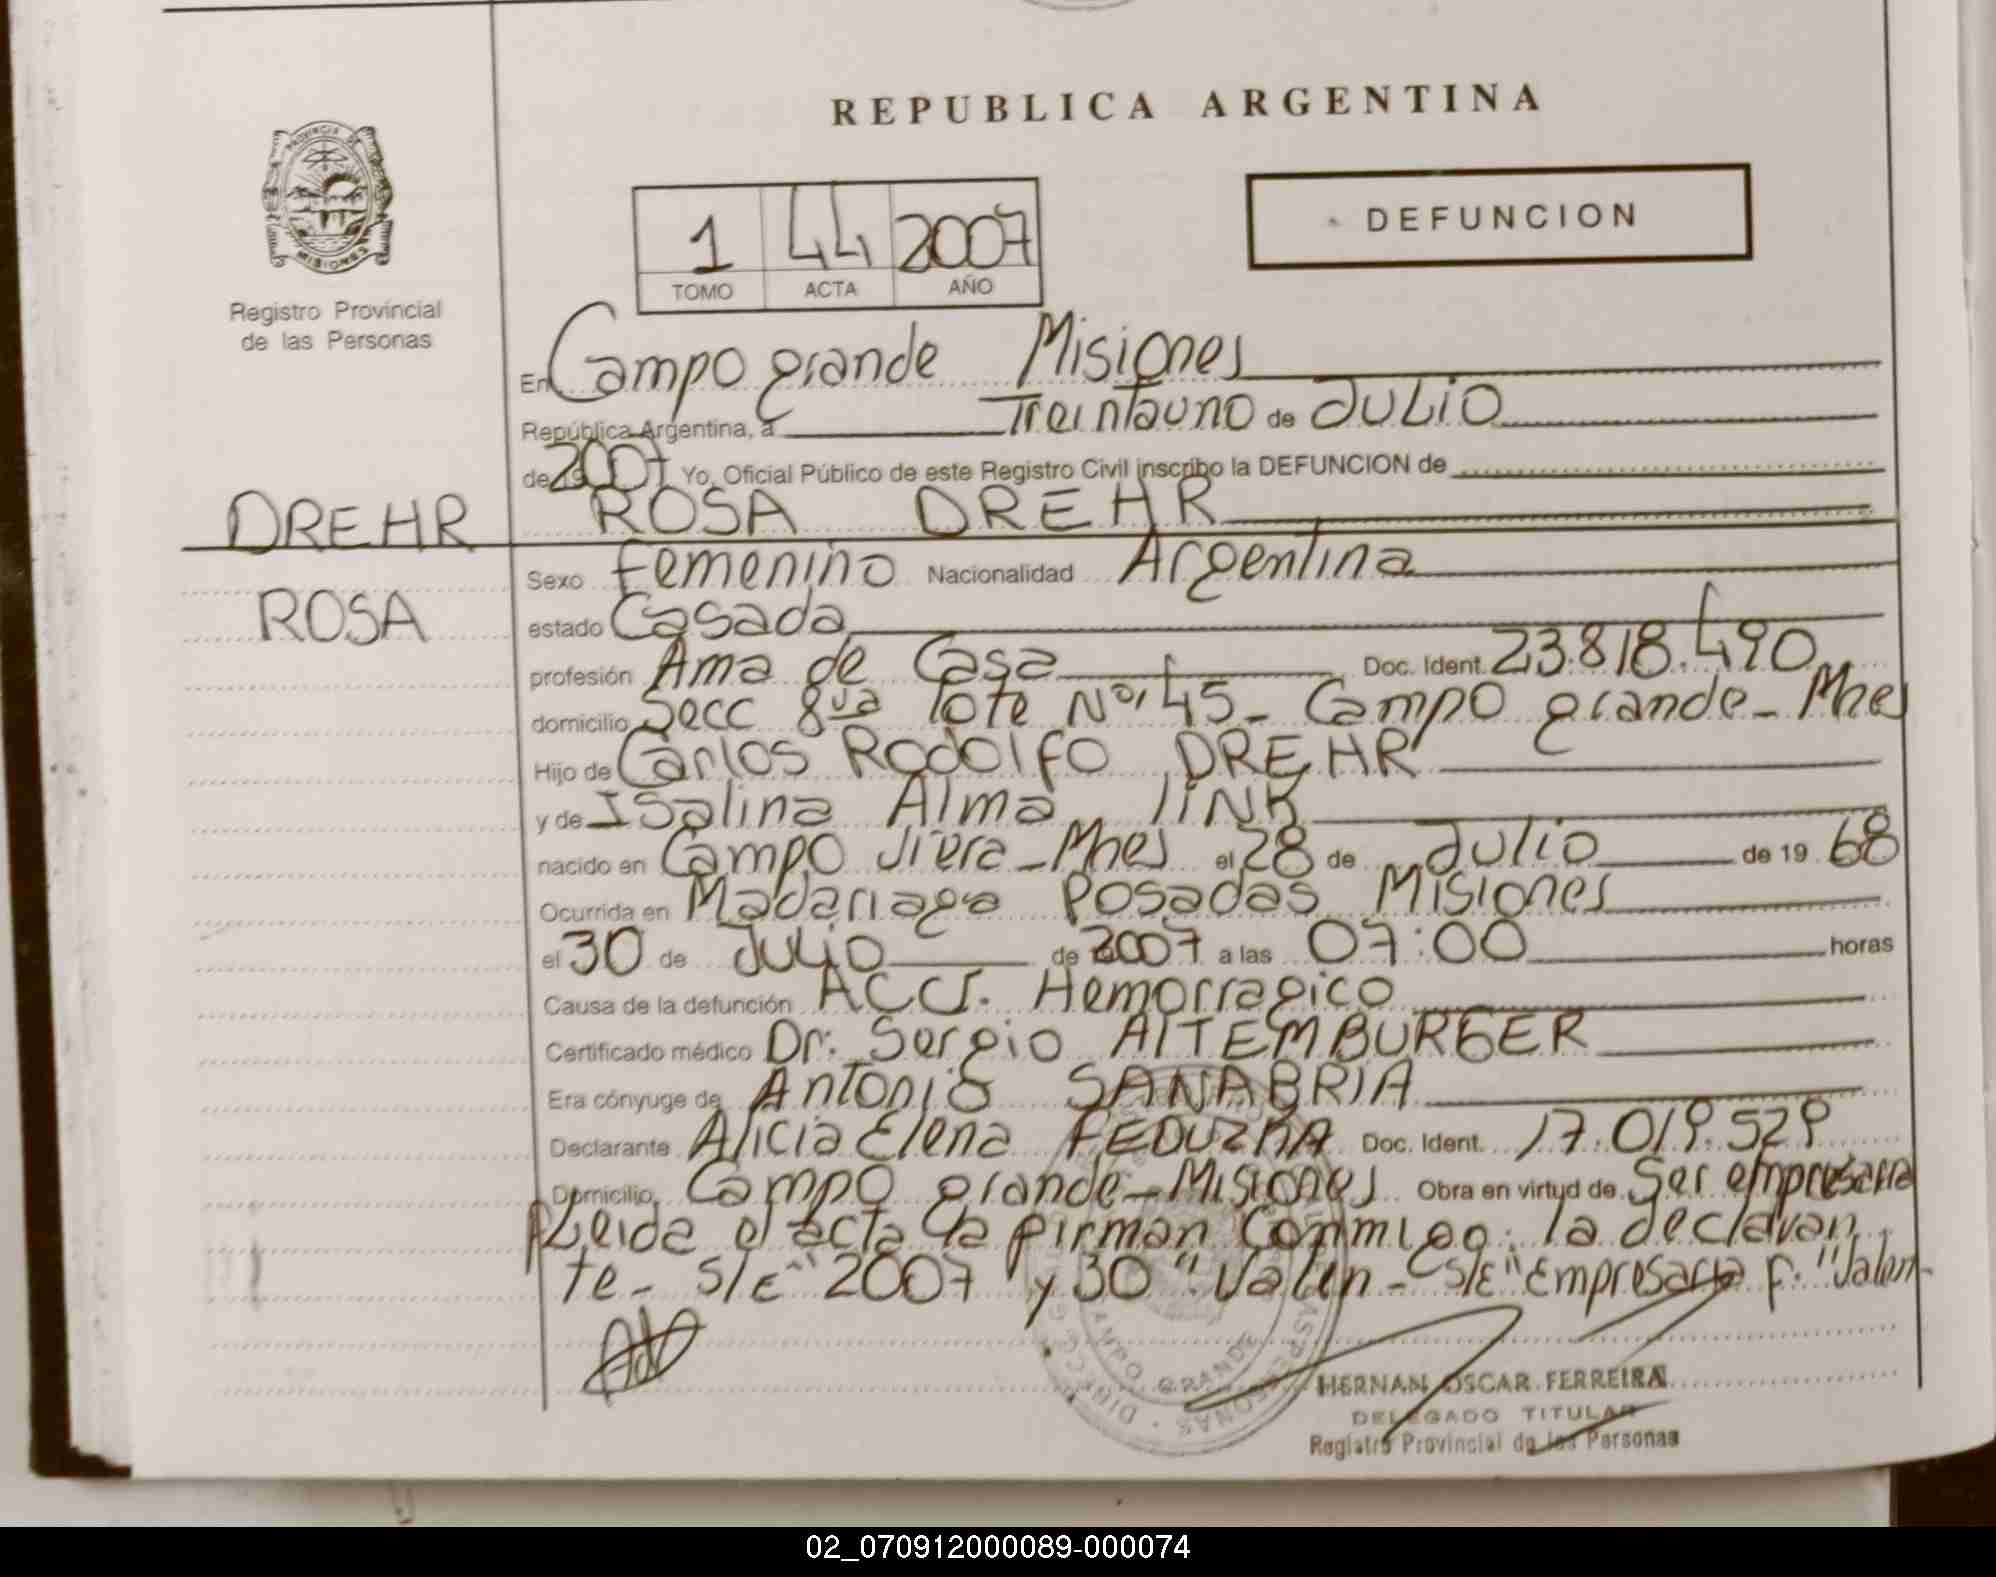 REPUBLICA ARGENTINA
PROVINCIA DE
MISIONES
Registro Provincial
de las Personas
1 44 2007
TOMO ACTA AÑO
DEFUNCION
En Campo grande Misiones
República Argentina, a Treintauno de Julio
de 2007 Yo, Oficial Público de este Registro Civil inscribo la DEFUNCION de
DREHR
ROSA DREHR
Sexo femenino Nacionalidad Argentina
ROSA
estado Casada
profesión Ama de Casa Doc. Ident. 23.818.490
domicilio Secc 8va lote Nº 145 - Campo grande - Mnes
Hijo de Carlos Rodolfo DREHR
y de Isalina Alma LINK
nacido en Campo Viera - Mnes el 28 de Julio de 19 68
Ocurrida en Madariaga Posadas Misiones
el 30 de Julio de 2007 a las 07:00 horas
Causa de la defunción Hemorragico
Certificado médico Dr. Sergio AlTEMBURGER
Era cónyuge de Antonio SANABRIA
Declarante Alicia Elena Doc. Ident. 17.019.529
Domicilio Campo grande - Misiones Obra en virtud de Ser empresaria
Leida el acta la firman Conmigo: la declaran
te - S/E "2007 y 30" Valen - S/E "Empresaria F." Valen-
CAMPO GRANDE
HERNAN OSCAR FERREIRA
DELEGADO TITULAR
Registro Provincial de las Personas
02_070912000089-000074